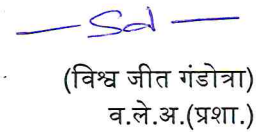 Sd
(विश्व जीत गंडोत्रा)
व.ले.अ.(प्रशा.)